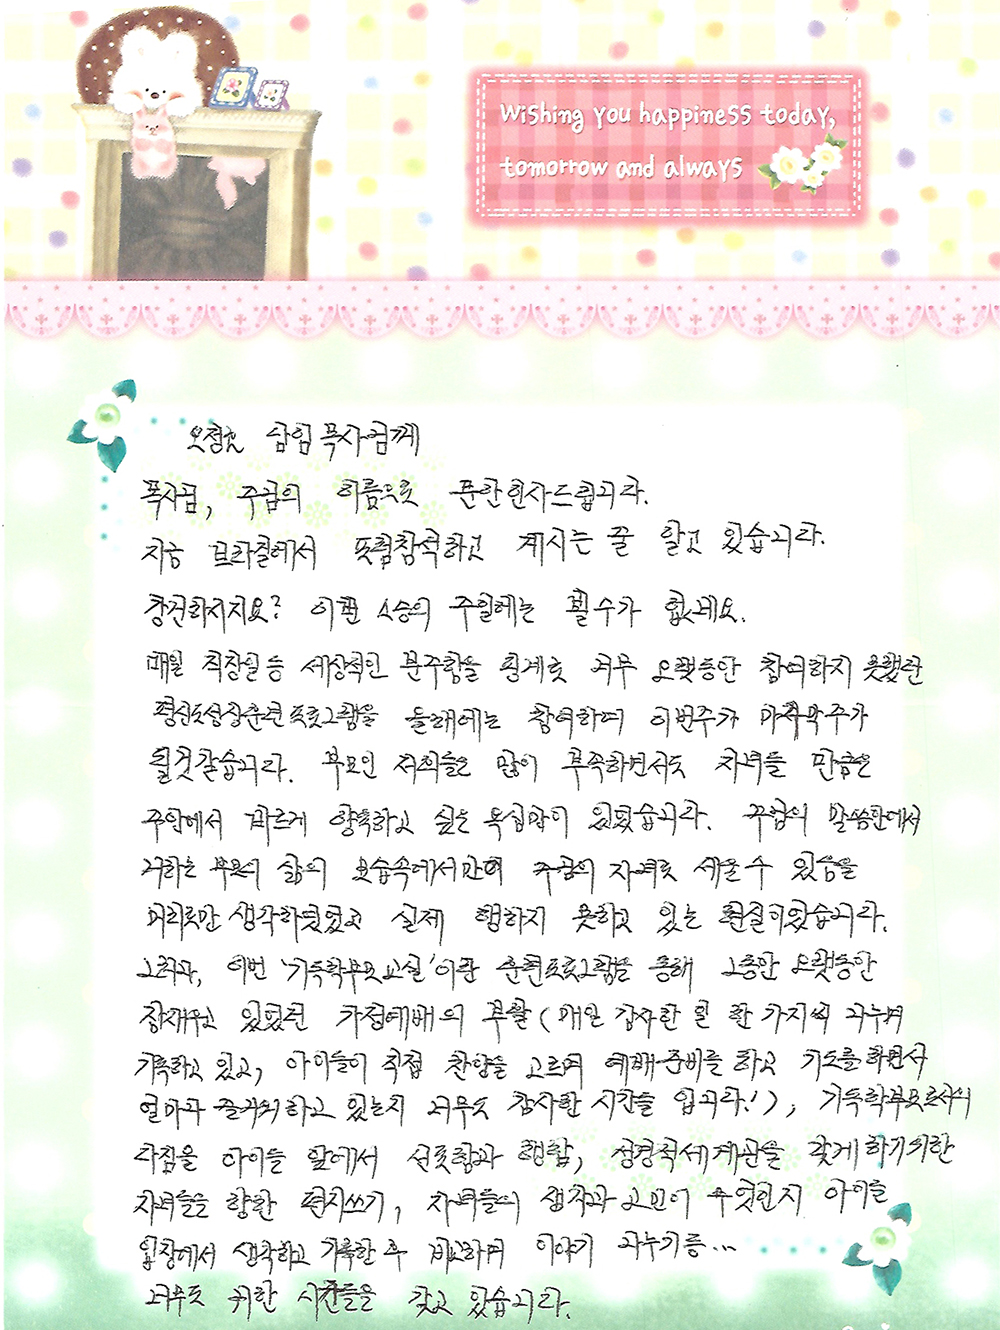 Wishing you happiness today,
tomorrow and always
오정호 담임목사님께
목사님, 주님의 이름으로 문안인사드립니다.
지금 브라질에서 포럼참석하고 계시는 줄 알고 있습니다.
강건하시지요? 이편 소송의 주일에는 뵐 수가 없네요.
매일 직장일 등 세상적인 분주함을 핑계로 너무 오랫동안 참여하지 못했던
평신도성장훈련 프로그램을 올해에는 참여하며 이번주가 마지막주가
될것같습니다. 부모인 저희들은 많이 부족하면서도 자녀들 만큼은
주안에서 바르게 양육하고 싶은 욕심많이 있었습니다. 주님의 말씀안에서
나라는 부모의 삶의 모습속에서만이 주님의 자녀로 세울 수 있음을
머리로만 생각하였었고 실제 행하지 못하고 있는 현실이었습니다.
그러나, 이번 '기독학부모교실'이란 훈련프로그램을 통해 그동안 오랫동안
잠재워고 있었던 가정예배의 부활 (매일 감사한 일 한 가지씩 나누며
기록하고 있고, 아이들이 직접 찬양을 고르며 예배준비를 하고 기도를 하면서
얼마나 즐거워하고 있는지 너무도 감사한 시간들 입니다!), 기독학부모로서의
다짐을 아이들 앞에서 선포함과 행함, 성경적세계관을 갖게 하기위한
자녀들을 향한 편지쓰기, 자녀들의 생각과 고민이 무엇인지 아이들
입장에서 생각하고 기록한 후 비교하며 이야기 나누기등...
너무도 귀한 시간들을 갖고 있습니다.